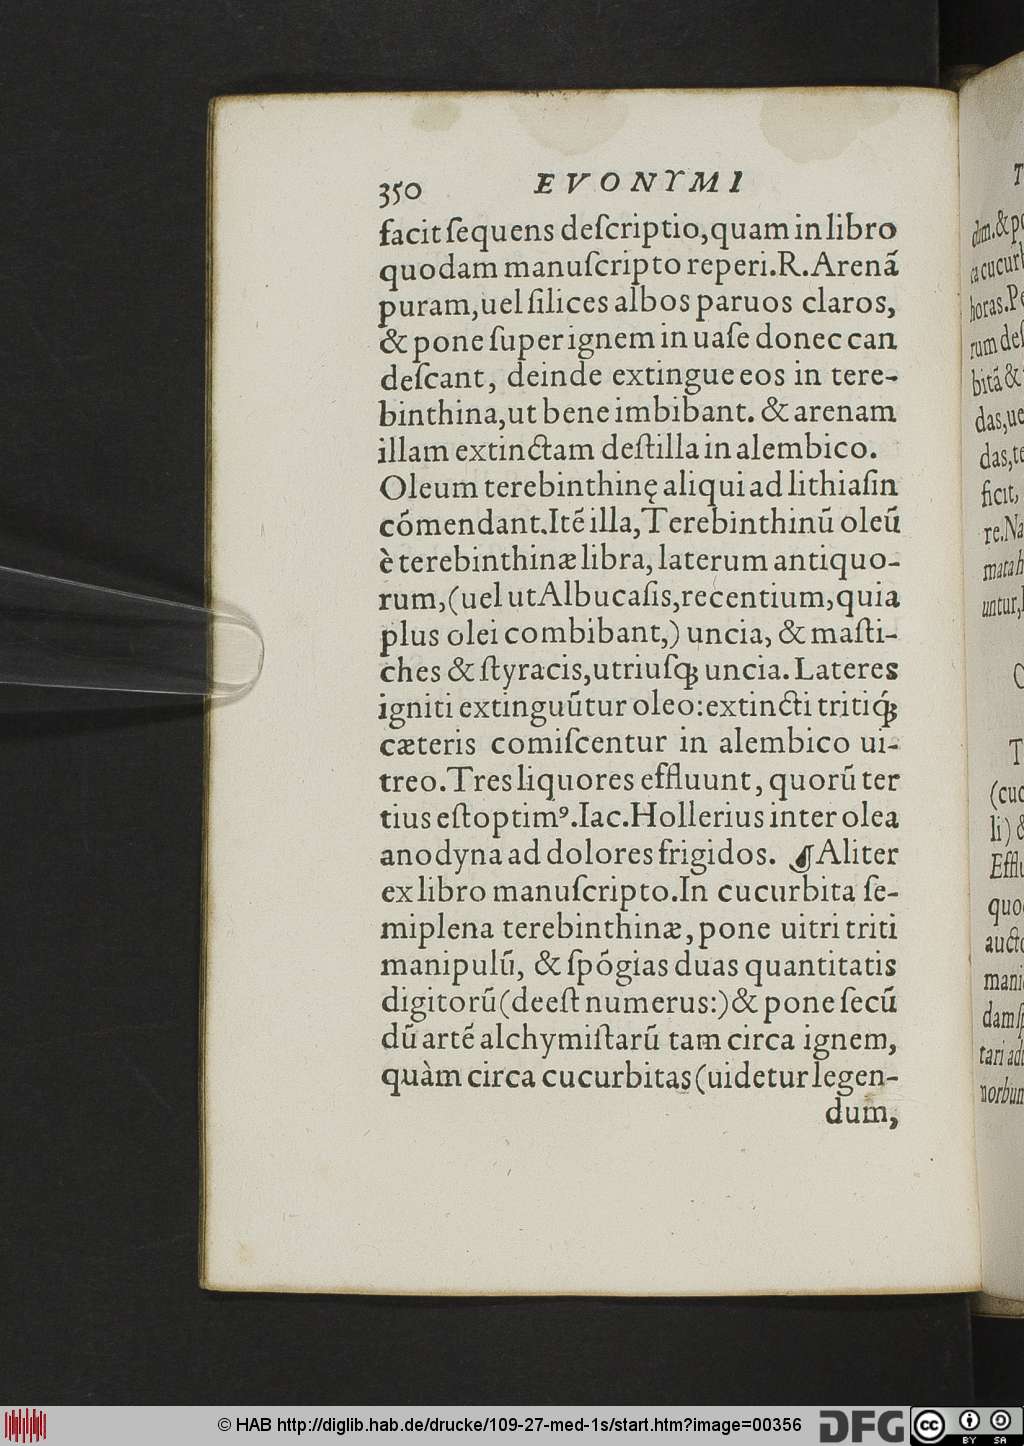 350 EVONYMI
facit ſequens deſcriptio, quam in libro
quodam manuſcripto reperi. R. Arenā
puram, uel ſilices albos paruos claros,
& pone ſuper ignem in uaſe donec can
deſcant, deinde extingue eos in tere-
binthina, ut bene imbibant. & arenam
illam extinctam deſtilla in alembico.
Oleum terebinthinę aliqui ad lithiaſin
cōmendant. Itē illa, Terebinthinū oleū
è terebinthinæ libra, laterum antiquo-
rum, (uel ut Albucaſis, recentium, quia
plus olei combibant,) uncia, & maſti-
ches & ſtyracis, utriuſq; uncia. Lateres
igniti extinguūtur oleo: extincti tritiq́;
cæteris comiſcentur in alembico ui-
treo. Tres liquores effluunt, quorū ter
tius eſt optimꝰ. Iac. Hollerius inter olea
anodyna ad dolores frigidos. ¶ Aliter
ex libro manuſcripto. In cucurbita ſe-
miplena terebinthinæ, pone uitri triti
manipulū, & ſpōgias duas quantitatis
digitorū (deeſt numerus:) & pone ſecū
dū artē alchymiſtarū tam circa ignem,
quàm circa cucurbitas (uidetur legen-
dum,
T
dum. & po
ca cucurb
horas. Pe
rum deſ
bitā &
das, ue
das, te
ficit,
re. Na
mata h
untur,
T
(cuc
li) &
Efflu
quo
aucto
mani
dam ſp
tari ad
norbum
© HAB http://diglib.hab.de/drucke/109-27-med-1s/start.htm?image=00356
DFG
cc BY SA